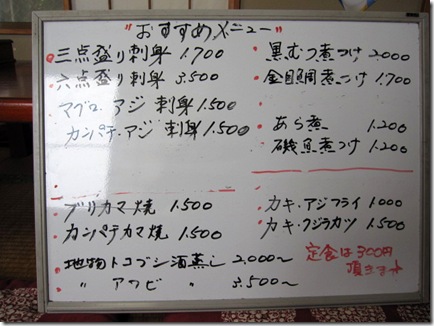 "おすすめメニュー"
三点盛り刺身 1.700
六点盛り刺身 3.500
マグロ・アジ 刺身 1.500
カンパチ・アジ 刺身 1.500
黒むつ煮つけ 2.000
金目鯛煮つけ 1.700
あら煮 1.200
磯魚煮つけ 1.200
ブリカマ焼 1.500
カンパチカマ焼 1.500
地物トコブシ酒蒸し 2.000〜
〃 アワビ 〃 3.500〜
カキ・アジフライ 1.000
カキ・クジラカツ 1.500
定食は300円
頂きます